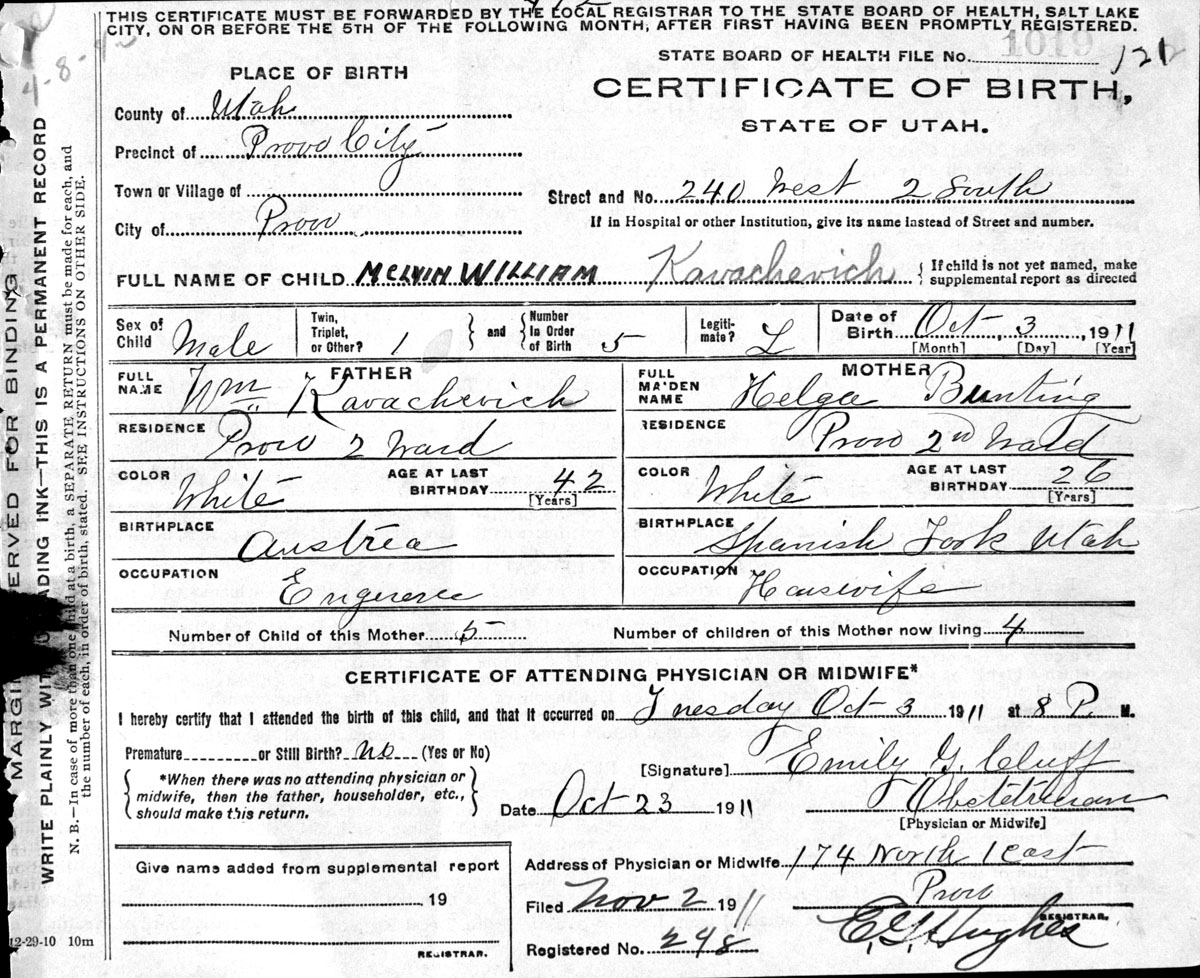 THIS CERTIFICATE MUST BE FORWARDED BY THE LOCAL REGISTRAR TO THE STATE BOARD OF HEALTH, SALT LAKE
CITY, ON OR BEFORE THE 5TH OF THE FOLLOWING MONTH, AFTER FIRST HAVING BEEN PROMPTLY REGISTERED.
STATE BOARD OF HEALTH FILE No. 1019 121
4-8-
PLACE OF BIRTH
CERTIFICATE OF BIRTH,
STATE OF UTAH.
County of Utah
Precinct of Provo City
Town or Village of
Street and No. 240 West 2 South
City of Provo
If in Hospital or other Institution, give its name instead of Street and number.
FULL NAME OF CHILD MELVIN WILLIAM Kavachevich { If child is not yet named, make supplemental report as directed
Sex of Child Male Twin, Triplet, or Other? 1 } and { Number In Order of Birth 5 Legiti-mate? L Date of Birth Oct 3, 1911
[Month] [Day] [Year]
FATHER
FULL NAME Wm Kavachevich
RESIDENCE Provo 2 Ward
COLOR White AGE AT LAST BIRTHDAY 42 [Years]
BIRTHPLACE Austria
OCCUPATION Engineer
MOTHER
FULL MAIDEN NAME Helga Bunting
RESIDENCE Provo 2nd Ward
COLOR White AGE AT LAST BIRTHDAY 26 [Years]
BIRTHPLACE Spanish Fork Utah
OCCUPATION Housewife
Number of Child of this Mother 5 Number of children of this Mother now living 4
CERTIFICATE OF ATTENDING PHYSICIAN OR MIDWIFE*
I hereby certify that I attended the birth of this child, and that it occurred on Tuesday Oct 3 1911 at 8 P. M.
Premature or Still Birth? No (Yes or No)
{ *When there was no attending physician or
midwife, then the father, householder, etc.,
should make this return. }
[Signature] Emily G. Cluff
Date Oct 23 1911 Obstetrician
[Physician or Midwife]
Give name added from supplemental report
19
REGISTRAR.
Address of Physician or Midwife 174 North 1 East
Provo
Filed Nov 2 1911
E. G. Hughes REGISTRAR.
Registered No. 248
12-29-10 10m
MARGIN RESERVED FOR BINDING
WRITE PLAINLY WITH UNFADING INK—THIS IS A PERMANENT RECORD
N. B.—In case of more than one child at a birth, a SEPARATE RETURN must be made for each, and
the number of each, in order of birth, stated. SEE INSTRUCTIONS ON OTHER SIDE.